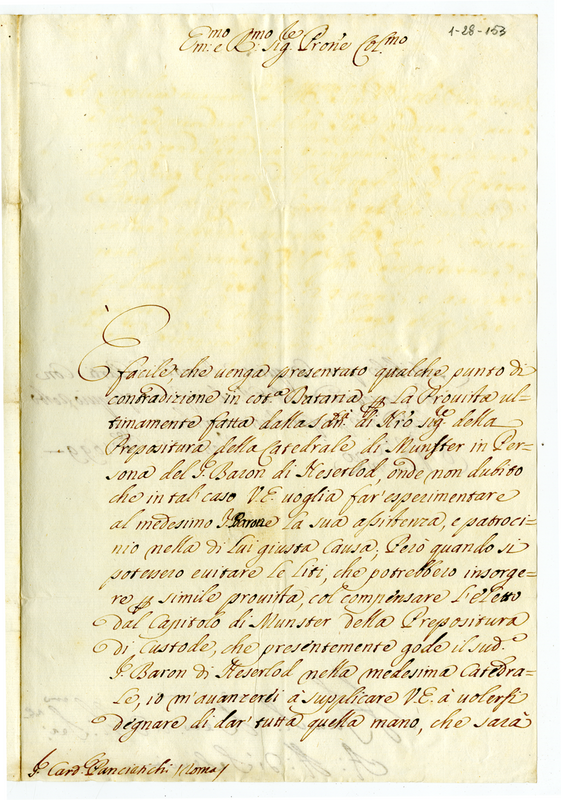 1-28-153
Em:mo e R:mo Sig:re Prone Col:mo
È facile, che venga presentato qualche punto di
contradizione in cot:a Dataria per La Provista ul-
timamente fatta dalla San:tà di N'ro Sig:re della
Prepositura della Catedrale di Munster in Per-
sona del S:r Baron di Heserlod, onde non dubito
che in tal caso V.E. voglia far' esperimentare
al medesimo S:r Barone La sua assistenza, e patroci-
nio nella di Lui giusta causa. Però quando si
potessero evitare Le Liti, che potrebbero insorge-
re per simile provista, col' compensare L'eletto
dal Capitolo di Munster della Prepositura
di Custode, che presentemente gode il sud:o
S:r Baron di Heserlod nella medesima Catedra-
Le, io m'avanzerei à supplicare V.E. à volersi
degnare di dar' tutta quella mano, che sarà
S:r Card: Panciatichi Roma